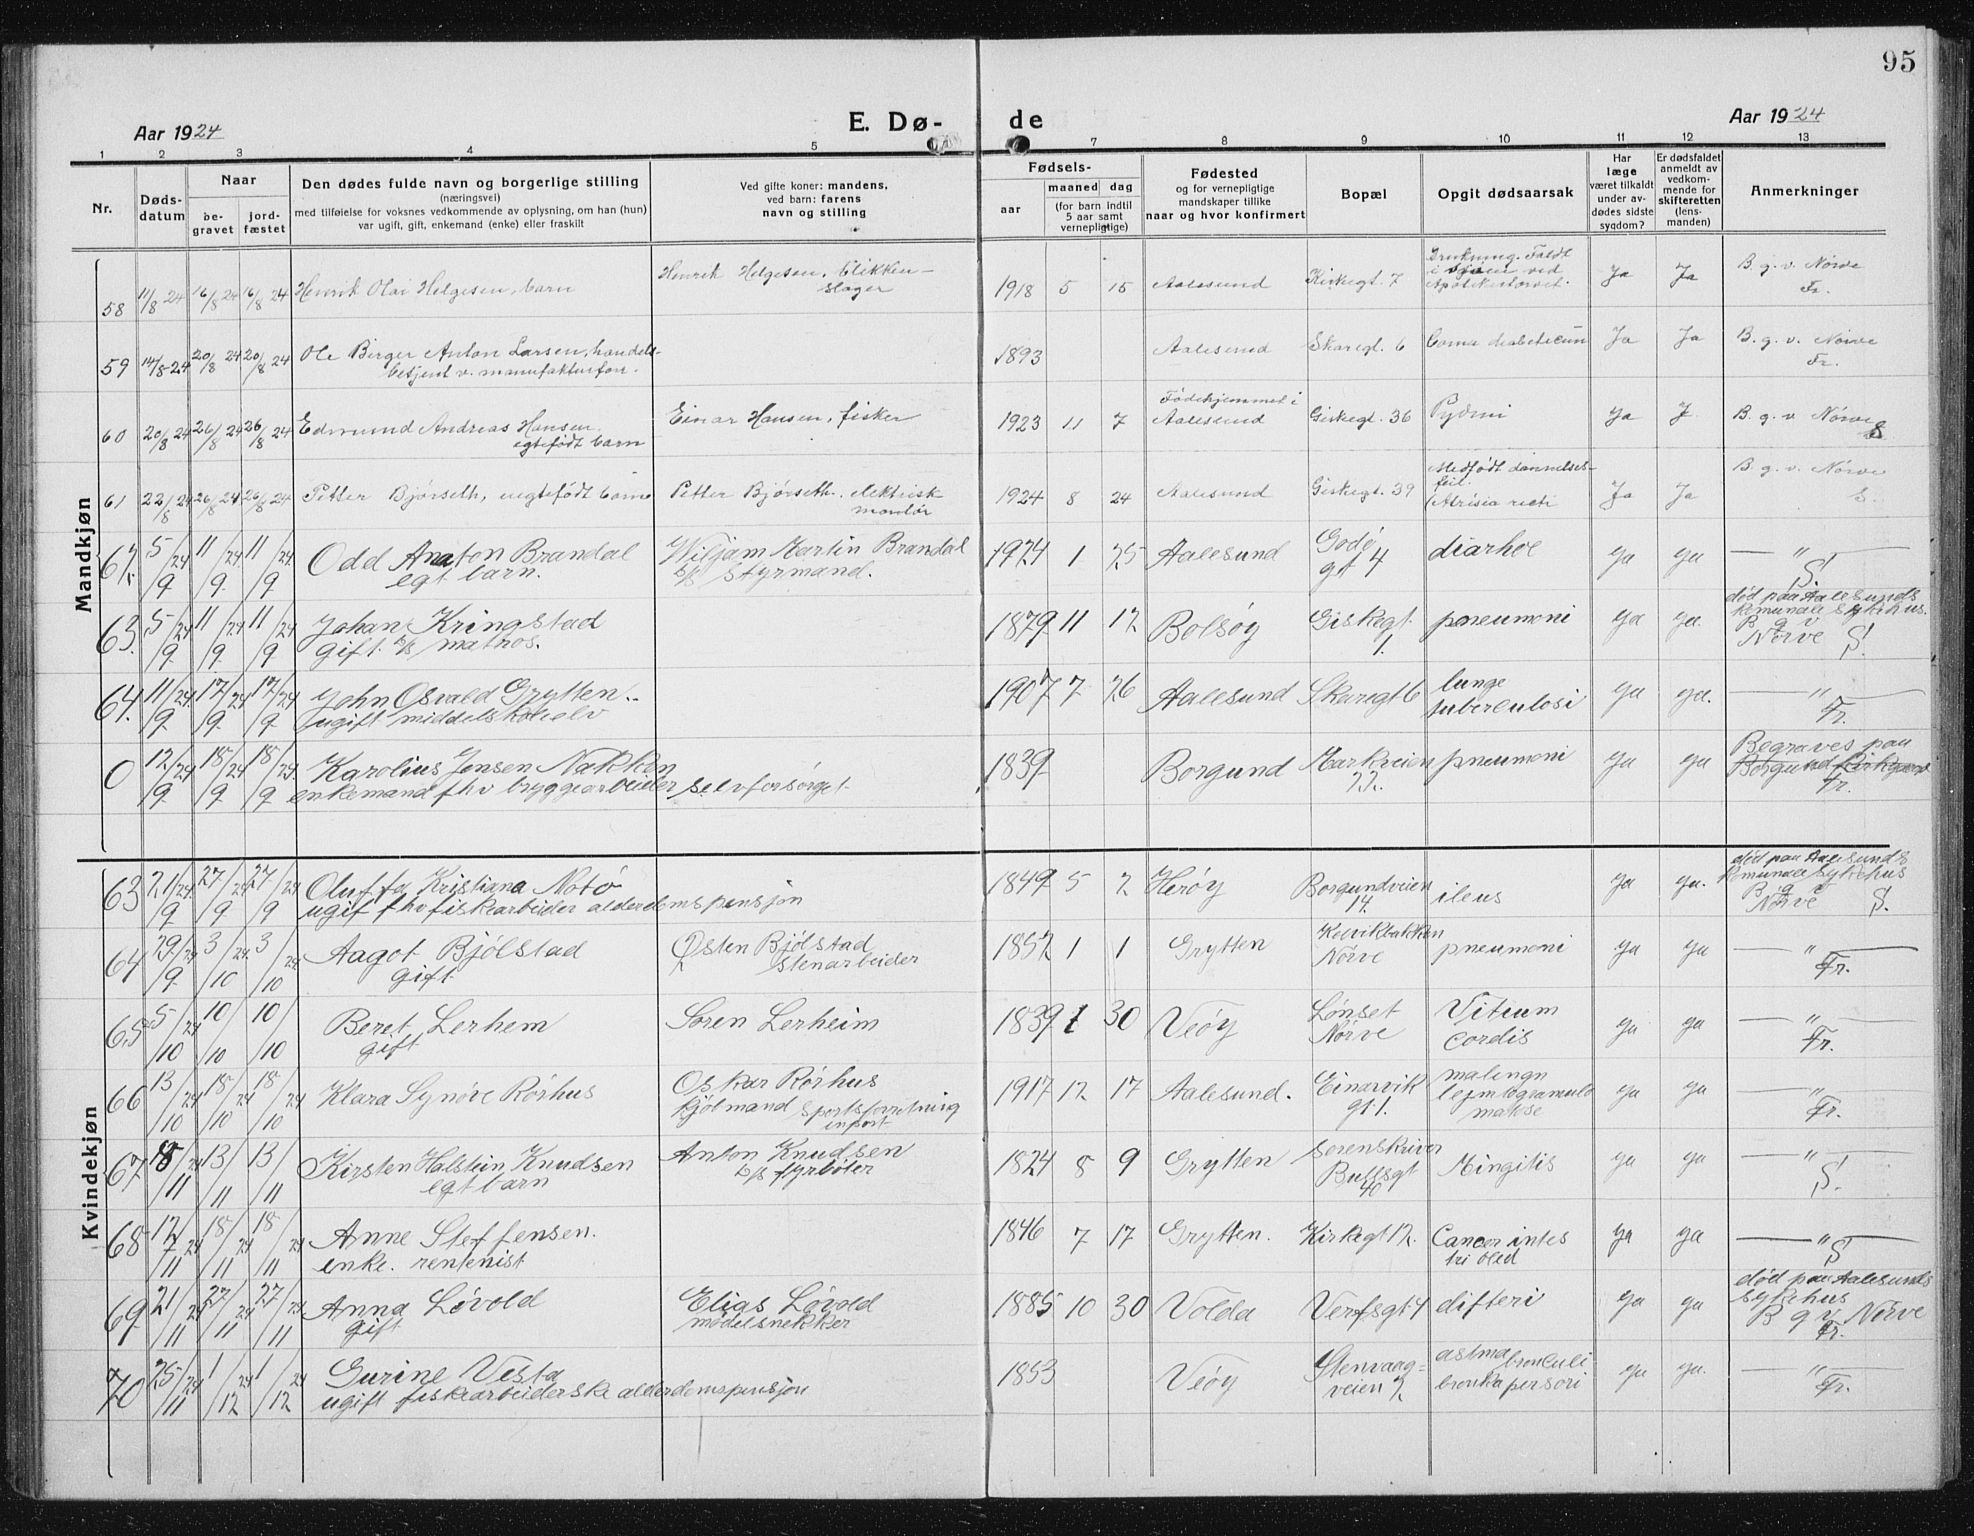 95
Aar 1924
E. Dø-
de
Aar 1924
1 2 3 4 5 7 8 9 10 11 12 13
Nr.
Døds-
datum
Naar
be-
gravet
jord-
fæstet
Den dødes fulde navn og borgerlige stilling
(næringsvei)
med tilføielse for voksnes vedkommende av oplysning, om han (hun)
var ugift, gift, enkemand (enke) eller fraskilt
Ved gifte koner: mandens,
ved barn: farens
navn og stilling
Fødsels-
aar
maaned dag
(for barn indtil
5 aar samt
vernepligtige)
Fødested
og for vernepligtige
mandskaper tillike
naar og hvor konfirmert
Bopæl
Opgit dødsaarsak
Har
læge
været tilkaldt
under av-
dødes sidste
sygdom?
Er dødsfaldet
anmeldt av
vedkom-
mende for
skifteretten
(lens-
manden)
Anmerkninger
Mandkjøn
58 11/8 24 16/8 24 16/8 24 Henrik Olai Helgesen, barn
Henrik Helgesen, blikken-
slager
1918 5 15 Aalesund Kirkegt. 7
Drukning. Faldt
i sjøen ved
Apotekertorvet.
Ja Ja B. g. v. Nørve
Fr.
59 14/8-24 20/8 24 20/8 24 Ole Birger Anton Larsen, handels-
betjent v. manufakturforr.
1893 Aalesund Skaregt. 6 Coma diabeticum Ja Ja B. g. v. Nørve
Fr.
60 20/8 24 26/8 24 26/8 24 Edmund Andreas Hansen.
egtefødt barn
Einar Hansen, fisker
1923 11 7 Fødehjemmet i
Aalesund Giskegt. 36 Pydmi Ja J. B. g. v. Nørve
S
61 22/8 24 26/8 24 26/8 24 Petter Bjørseth, uegtefødt barn
Petter Bjørseth, elektrisk
montør
1924 8 24 Aalesund Giskegt. 39
Medfødt dannelses-
feil.
(Atrisia recti
Ja Ja B. g. v. Nørve
S.
62. 5/9 24 11/9 24 11/9 24 Odd Anaton Brandal
egt barn.
Wiljam Martin Brandal
b/s Styrmand.
1924 1 25 Aalesund Godø
gt 4 diarhoe ja ja — " —
S!
63. 5/9 24 11/9 24 11/9 24 Johan Kringstad
gift. b/s matros.
1879 11 12 Bolsøy Giskegt.
1. pneumoni ja ja.
død paa Aalesunds
komunale sykehus.
B g v
Nørve S!
64. 11/9 24 17/9 24 17/9 24 John Osvald Grytten..
ugift middelskoleelv
1907 7 26 Aalesund Skaregt 6 lunge
tuberculosi ja ja. — " —
Fr.
0 12/9 24 18/9 24 18/9 24 Karolius Jensen Nakken
enkemand fhv bryggearbeider selvforsørget.
1839 Borgund Markveien pneumoni ja ja
Begraves paa
Borgund Kirkgaard
Fr.
Kvindekjøn
63 21/9 24 27/9 24 27/9 24 Oluffa Kristiana Notø
ugif fhv fiskearbeider alderdomspensjon
1849 5 2 Herøy Borgundveien
14. ileus ja ja.
død paa Aalesunds
komunale sykehus
B g v
Nørve S.
64 29/9 24 3/10 24 3/10 24 Aagot Bjølstad
gift.
Østen Bjølstad
stenarbeider
1852 1 1 Grytten
Nørve pneumoni ja ja — " —
Fr.
65 5/10 24 10/10 10/10 Beret Lerhem
gift
Søren Lerheim
1839 1 30 Veøy Lønset
Nørve Vitium
cordis ja ja — " —
Fr.
66 13/10 24 18/10 24 18/10 24 Klara Synøve Rørhus
Oskar Rørhus
kjøbmand sportsforretning
inport
1917 12 17 Aalesund. Einarvik
gt 1. malingn
makse ja ja — " —
Fr.
67 8/11 24 13/11 13/11 Kirsten Halstein Knudsen
egt barn
Anton Knudsen
b/s fyrbøter
1824 8 9 Grytten Sorenskriver
Bullsgt
40 Mingitis ja ja — " —
S!
68 12/11 24 18/11 24 18/11 24 Anne Steffensen.
enke. rentenist
1846 7 17 Grytten. Kirkegt 12. Cancer intes
tri oled ja ja — " —
S!
69 21/11 24 27/11 24 27/11 24 Anna Løvold
gift
Elias Løvold
modelsnekker
1885 10 30 Volda Verfsgt 4 difteri ja ja
død paa Aalesunds
sykehus
B g v Nørve
Fr.
70 25/11 24 1/12 24 1/12 24 Gurine Vesta
ugift fiskearbeiderske alderdomspensjon
1853 Veøy Stenvaag-
veien astma
ja ja. — " —
Fr.